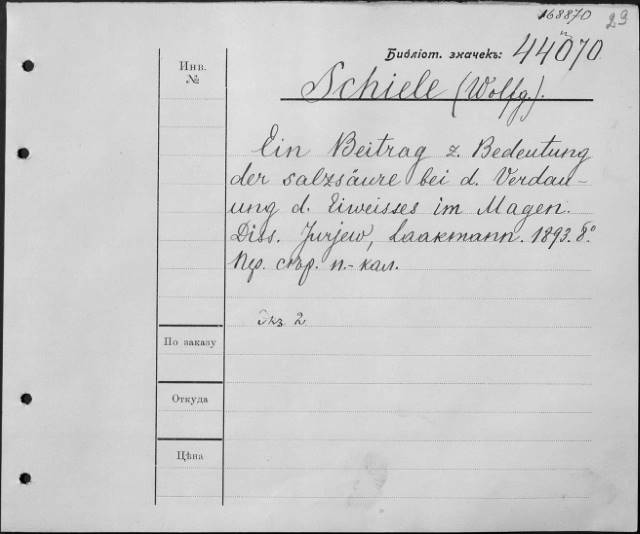 168870 23
Библіот. значекъ: 44070
Инв.
№
Schiele (Wolfg.).
Ein Beitrag z. Bedeutung
der salzsäure bei d. Verdau-
ung d. Eiweisses im Magen.
Diss. Jurjew, Laakmann. 1893. 8°.
Кор. стор. п.-кал.
Экз. 2
По заказу
Откуда
Цѣна